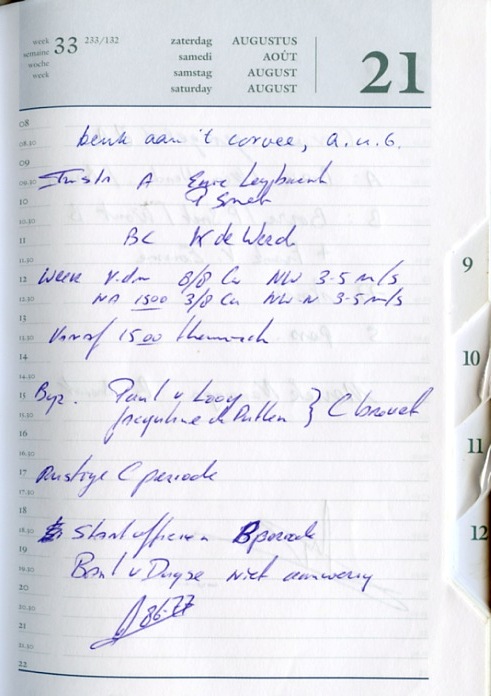 week
semaine
woche
week
33 233/132
zaterdag AUGUSTUS
samedi AOÛT
samstag AUGUST
saturday AUGUST
21
08
08.30
09
09.30
10
10.30
11
11.30
12
12.30
13
13.30
14
14.30
15
15.30
16
16.30
17
17.30
18
18.30
19
19.30
20
20.30
21
21.30
22
benk aan 't corvee, a.u.b.
Instr A
P Smet
BC W de Weerd
Weer v.dm 8/8 Cu NW 3-5 m/s
NA 1500 3/8 Cu NW-N 3-5 m/s
Vanaf 1500 thermisch
Byz. Paul v Looy
Jacqueline de Rutten } C brevet
Rustige C periode
Startofficieren B periode
Bart v niet aanwezig
86-77
9
10
11
12